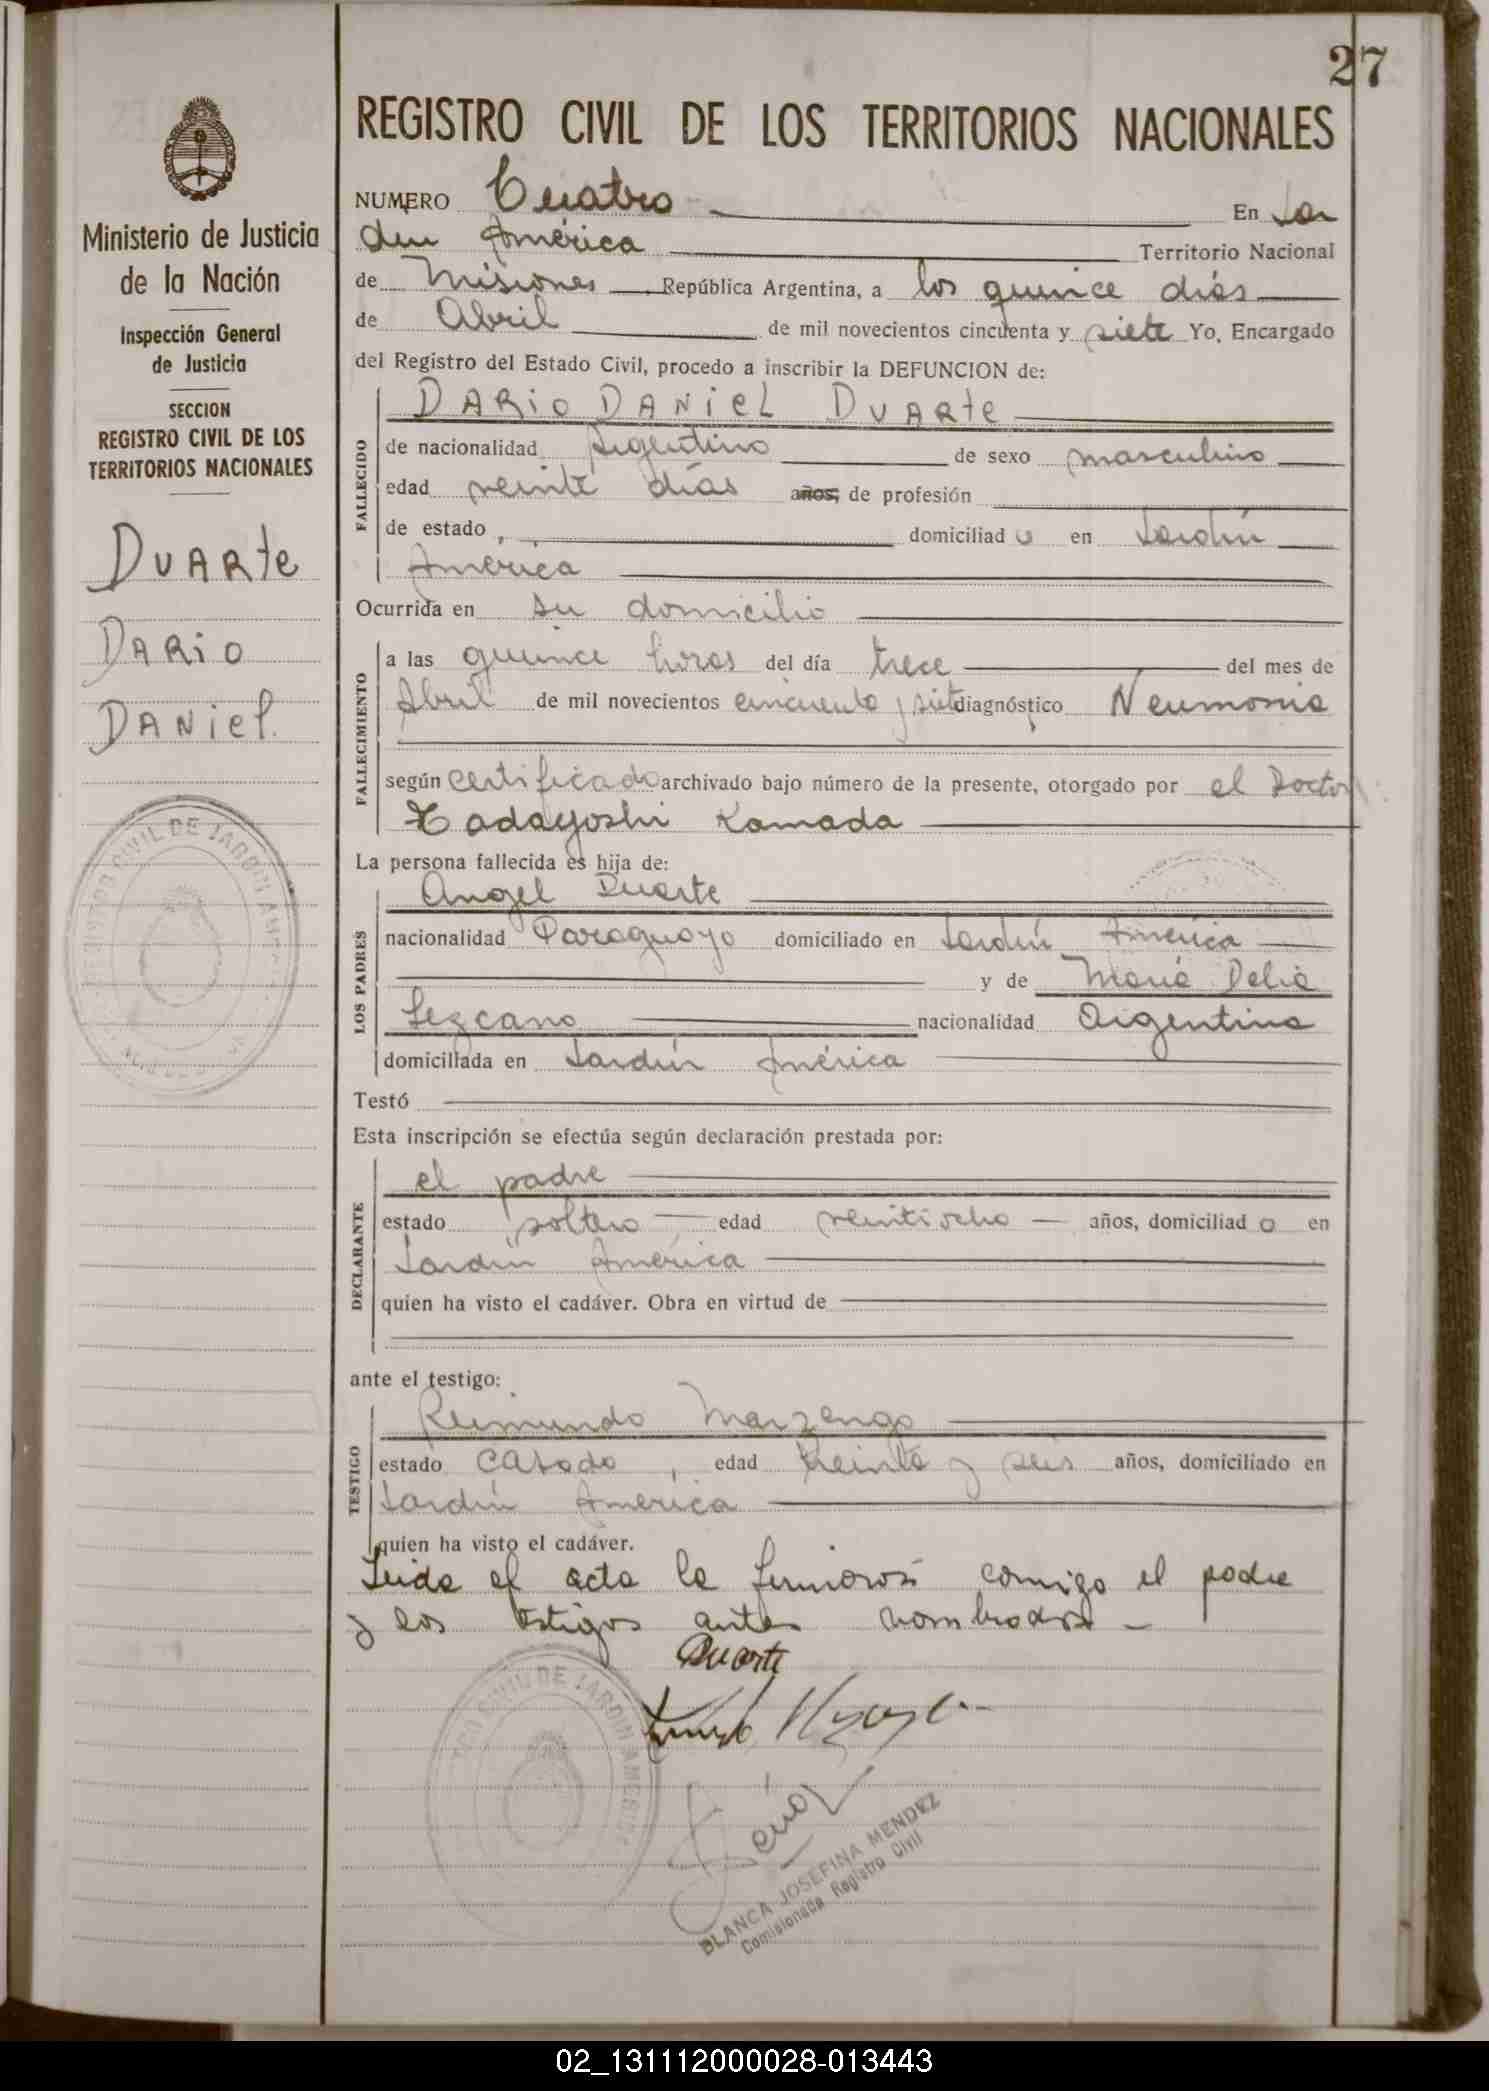 27
REGISTRO CIVIL DE LOS TERRITORIOS NACIONALES
Ministerio de Justicia
de la Nación
Inspección General
de Justicia
SECCION
REGISTRO CIVIL DE LOS
TERRITORIOS NACIONALES
DUARTE
DARIO
DANIEL
NUMERO Cuatro En Jar
din América Territorio Nacional
de Misiones República Argentina, a los quince días
de Abril de mil novecientos cincuenta y siete Yo, Encargado
del Registro del Estado Civil, procedo a inscribir la DEFUNCION de:
FALLECIDO
DARIO DANIEL DUARTE
de nacionalidad Argentino de sexo masculino
edad veinte días años, de profesión
de estado domiciliado en Jardín
América
Ocurrida en su domicilio
FALLECIMIENTO
a las quince horas del día trece del mes de
Abril de mil novecientos cincuenta y siete diagnóstico Neumonia
según certificado archivado bajo número de la presente, otorgado por el Doctor
Tadayoshi Kamada
La persona fallecida es hija de:
LOS PADRES
Angel Duarte
nacionalidad Paraguayo domiciliado en Jardín América
y de María Delia
Lezcano nacionalidad Argentina
domiciliada en Jardín América
Testó
Esta inscripción se efectúa según declaración prestada por:
DECLARANTE
el padre
estado soltero edad veintiocho años, domiciliado en
Jardín América
quien ha visto el cadáver. Obra en virtud de
ante el testigo:
TESTIGO
Reimundo Marzengo
estado casado, edad treinta y seis años, domiciliado en
Jardín América
quien ha visto el cadáver.
Leida el acta la firmaron comigo el padre
y los testigos antes nombrados -
Duarte
REGISTRO CIVIL DE JARDIN AMERICA
BLANCA JOSEFINA MENDEZ
Comisionada Registro Civil
02_131112000028-013443